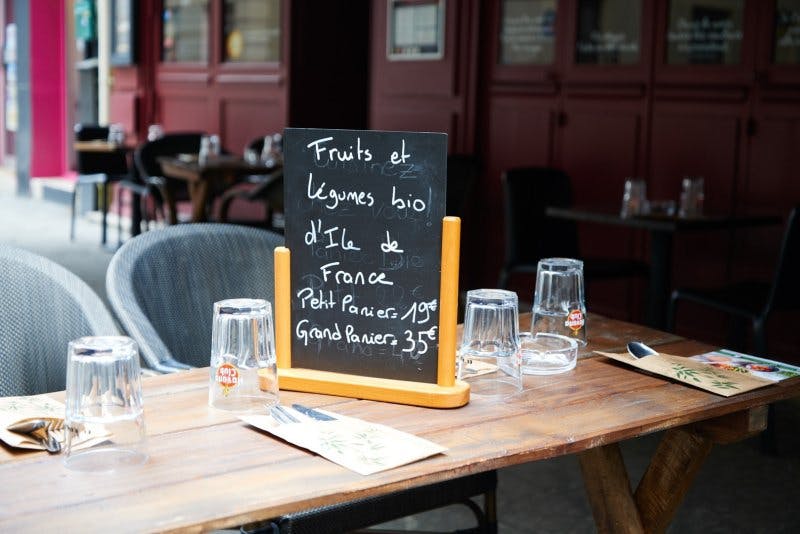 Fruits et
légumes bio
d'Ile de
France
Petit Panier = 19€
Grand Panier = 35€